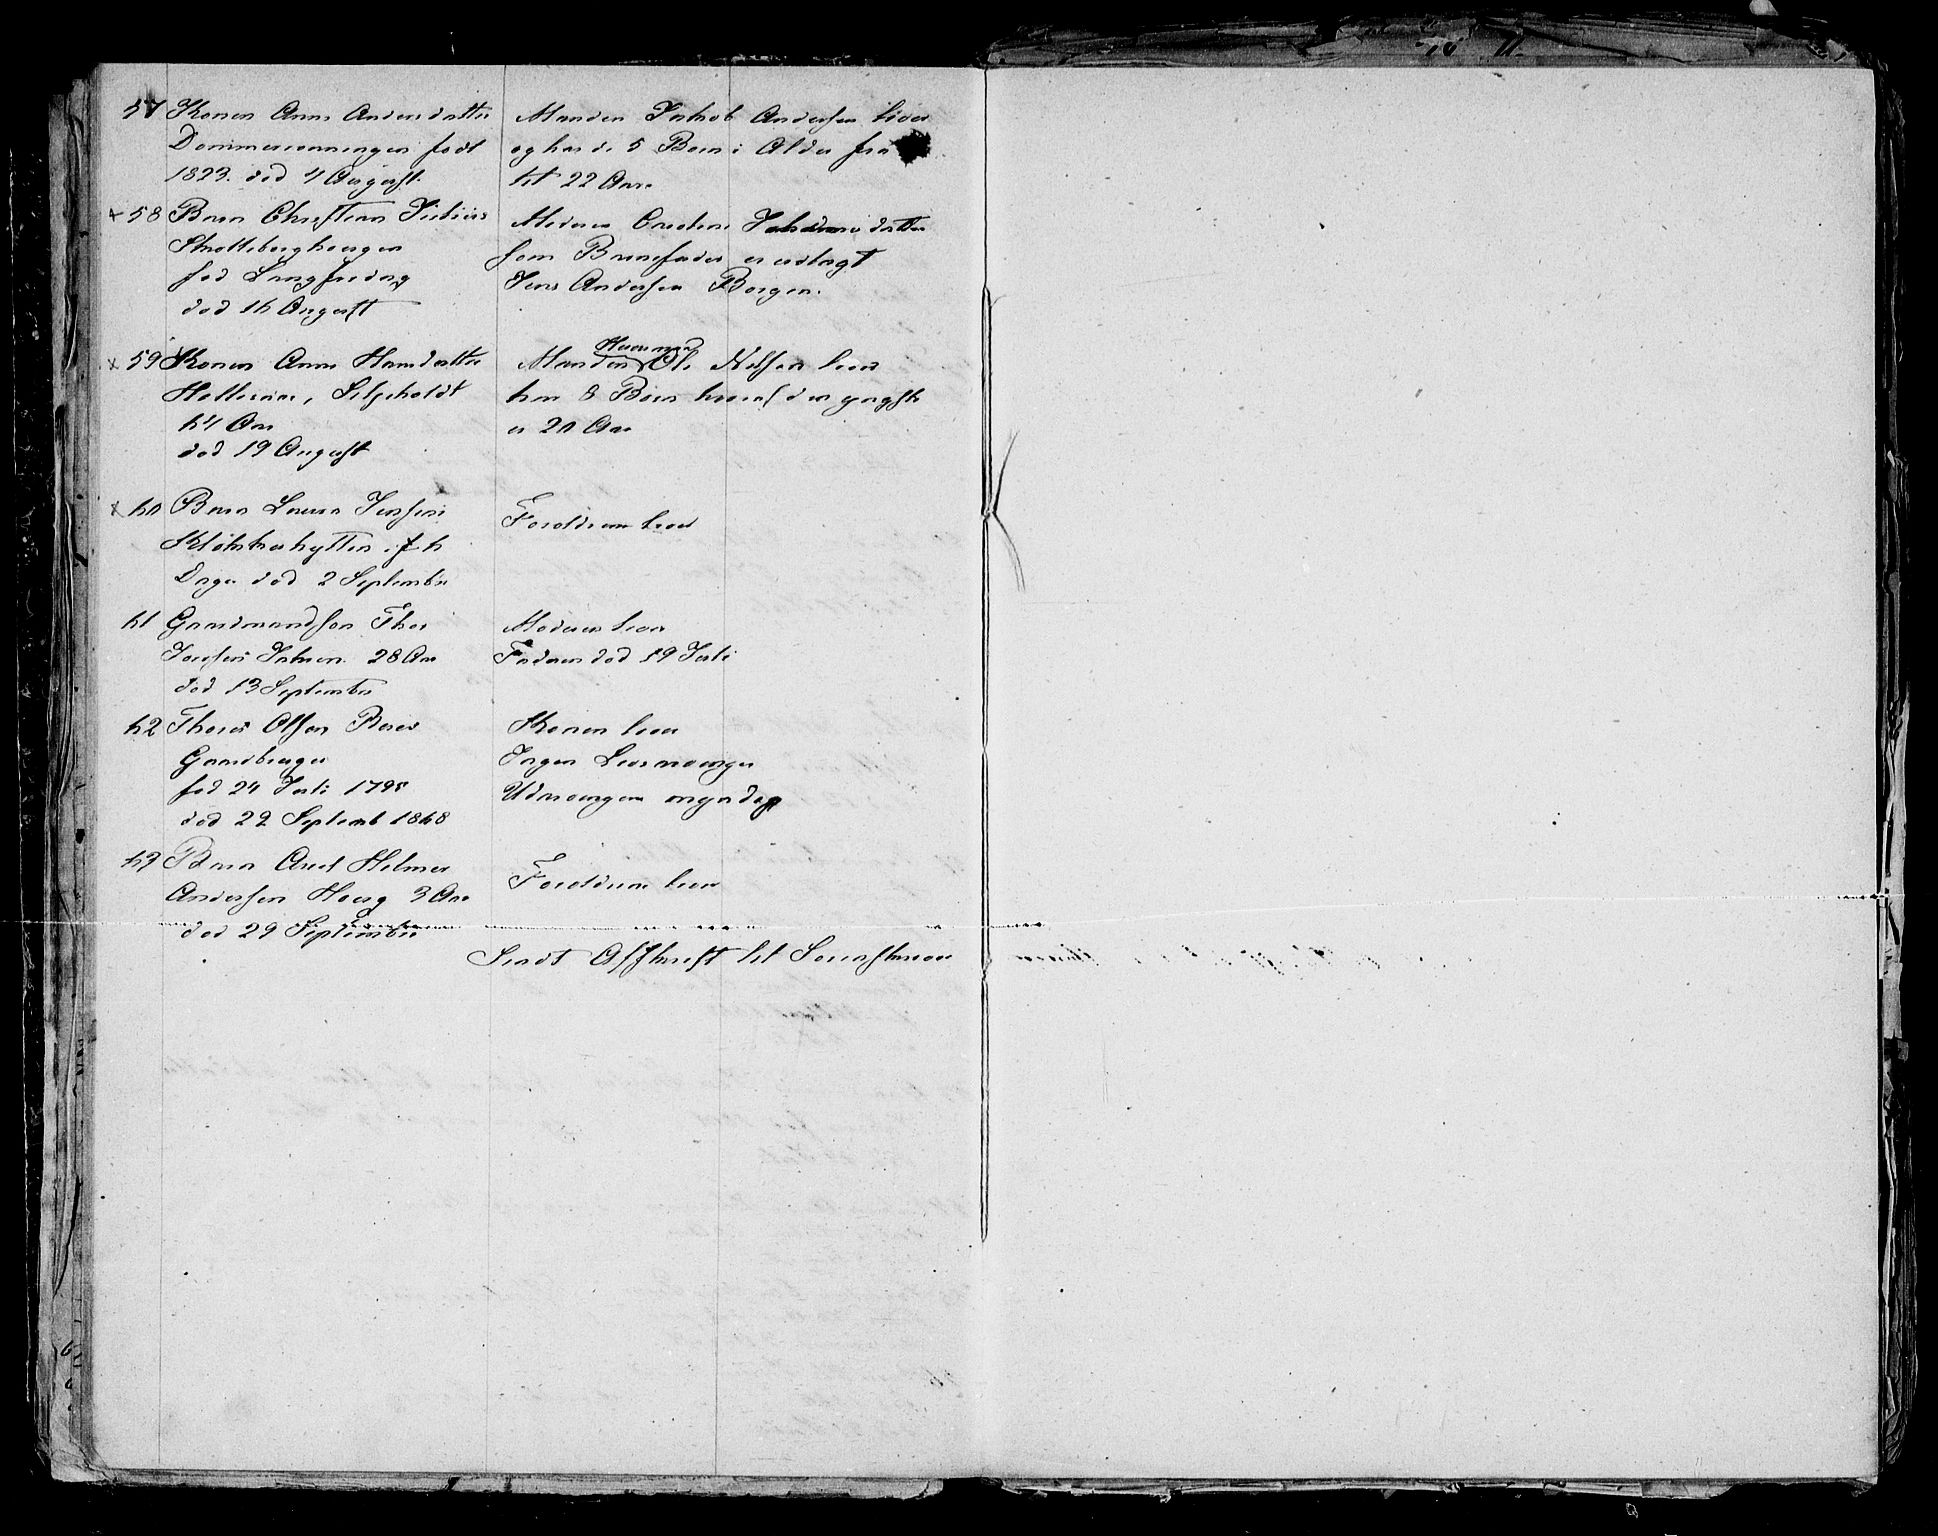 57 Konen Anne Andersdatter
Dommerenningen født
1823. død 4 August.
Manden Jakob Andersen lever
og har de 5 Børn i Alder fra
til 22 Aar.
x 58 Barn Christian Julius
Skotteberghougen
fød Langfredag
død 16 August
Moderen Andrine Johannesdatter
som Barnefader er udlagt
Jens Andersen Borgen.
x 59 Konen Anne Hansdatter
Holterine, Seljeholdt
64 Aar
død 19 August
Manden Huusmand Ole Nelsen lever
har 8 Børn hvoraf den yngste
er 20 Aar
x 60 Barn Laura Jensen
Klokkerhytten, 6
Dage død 2 September
Forældrene lever
61 Gaardmandssøn Thor
28 Aar
død 13 September
Moderen lever
Faderen død 19 Juli
62 Thores Olsen
Gaardbruger
fød 24 Juli 1795
død 22 Septemb 1868
Konen lever
Ingen Livsarvinger
Udarvingerne myndige
63 Barn Axel Hilmer
Andersen Houg 3 Aar
død 29 September
Forældrene lever
Sendt Afskrift til Sorenskriveren